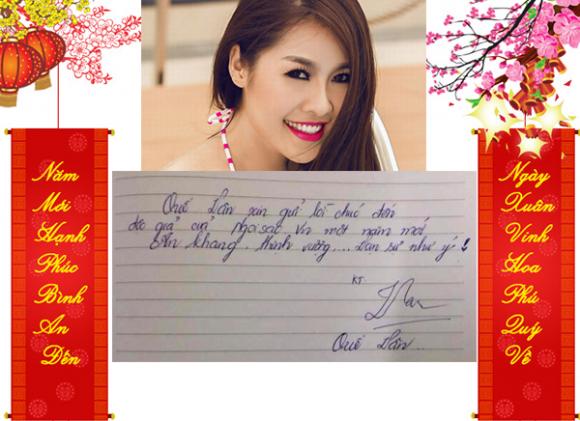 Năm
Mới
Hạnh
Phúc
Bình
An
Đến
Quế Vân xin gửi lời chúc đến
độc giả của Ngoisao.vn một năm mới
An khang, thịnh vượng.... Vạn sự như ý!
KT.
Quế Vân..
Ngày
Xuân
Vinh
Hoa
Phú
Quý
Về